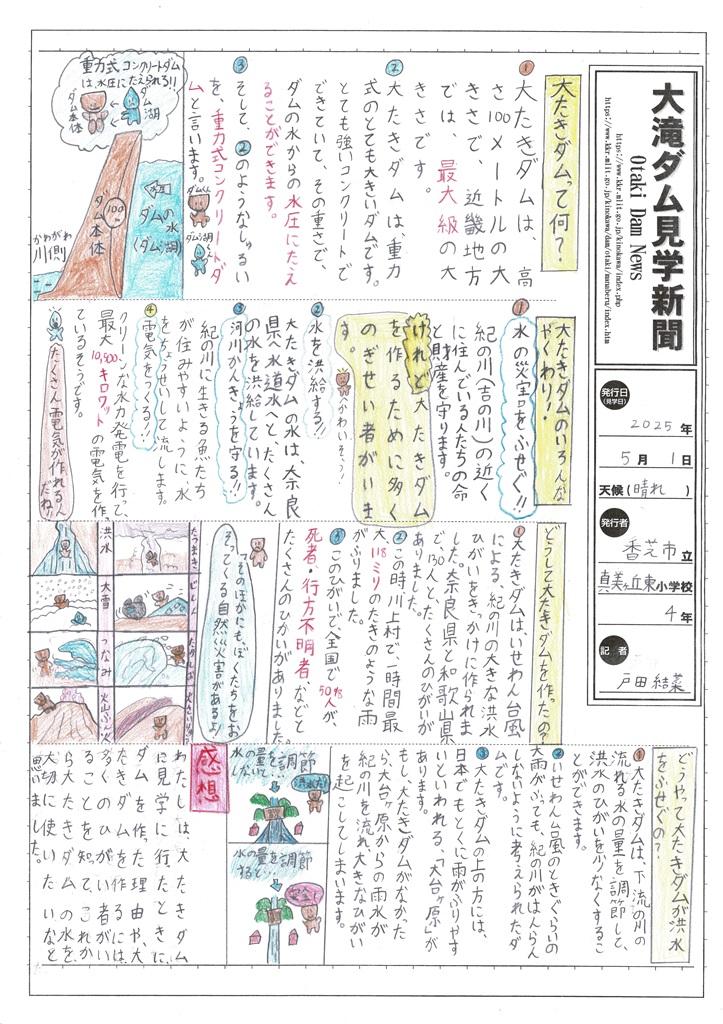 大滝ダム見学新聞
Otaki Dam News
https://www.kkr.mlit.go.jp/kinokawa/index.php
https://www.kkr.mlit.go.jp/kinokawa/dam/otaki/manabou/index.htm
発行日
(見学日)
2025年
5月1日
天候(晴れ)
発行者
香芝市立
真美ヶ丘東小学校
4年
記者
戸田結菜
大たきダムって何?
①大たきダムは、高
さ100メートルの大
きさで、近畿地方
では、最大級の大
きさです。
②大たきダムは、重力
式のとても大きいダムです。
とても強いコンクリートで
できていて、その重さで、
ダムの水からの水圧にたえ
ることができます。
③そして、②のようなしゅるい
を、重力式コンクリートダ
ムと言います。
ダムくん
ダム湖
重力式コンクリートダム
は、水圧にたえられる!!
ダム湖
ダム本体
水圧
ダムの水
(ダム湖)
100
ダム本体
かわがわ
川側
大たきダムのいろんな
やくわり!
①水の災害をふせぐ!!
紀の川(吉の川)の近く
に住んでいる人たちの命
と財産を守ります。
けれど大たきダム
を作るために多く
のぎせい者がいま
す。
かわいそう!
②水を洪給する!!
大たきダムの水は、奈良
県へ水道水へと、たくさん
の水を洪給しています。
③河川かんきょうを守る!!
紀の川に生きる魚たち
が住みやすいように、水
をちょうせいして流します。
④電気をつくる!!
クリーンな水力発電を行って、
最大10,500キロワットの電気を作っ
ているそうです。
たくさん電気が作れるん
だね!!
どうして大たきダムを作ったの?
①大たきダムは、いせわん台風
による、紀の川の大きな洪水
ひがいをきっかけに作られま
した。奈良県と和歌山県
で、130人と、たくさんのひがいが
ありました。
②この時川上村で、一時間最
大、118ミリのたきのような雨
がふりました。
③このひがいで、全国で50%が、
死者・行方不明者、などと
たくさんのひがいがありました。
「そのほかにも、ぼくたちをお
そってくる自然災害があるよ」
たつまき
じしん
洪水
大雪
つなみ
火山ふん火
どうやって大たきダムが洪水
をふせぐの?
①大たきダムは、下流の川の
流れる水の量を調節して、
洪水のひがいを少なくするこ
とができます。
②いせわん台風のときぐらいの
大雨がふっても、紀の川がはんらん
しないように考えられたダ
ムです。
③大たきダムの上の方には、
日本でもとくに雨がふりやす
いといわれる、「大台ヶ原」が
あります。
もし、大たきダムがなかった
ら、大台ヶ原からの雨水が
紀の川を流れ、大きなひがい
を起こしてしまいます。
水の量を調節
しないと…
洪水だ!
水の量を調節
すると…
安全!
感想
わたしは、大たきダム
に見学に行ったときに、
ダムを作った理由や、大
たきダムを作るには、
多くのひがい者がい
ることを知って、これか
ら大たきダムの水を、
大切に使いたいなと
思いました。